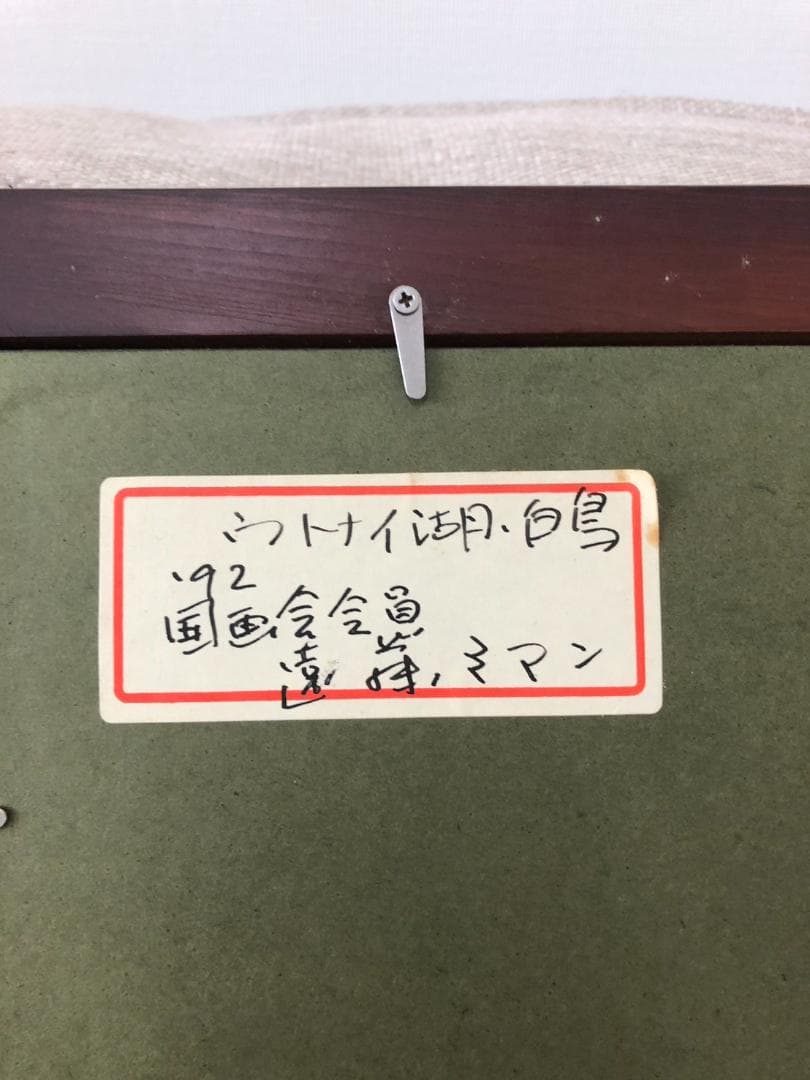 ウトナイ湖、白鳥
'92
国画会会員
遠藤ミマン